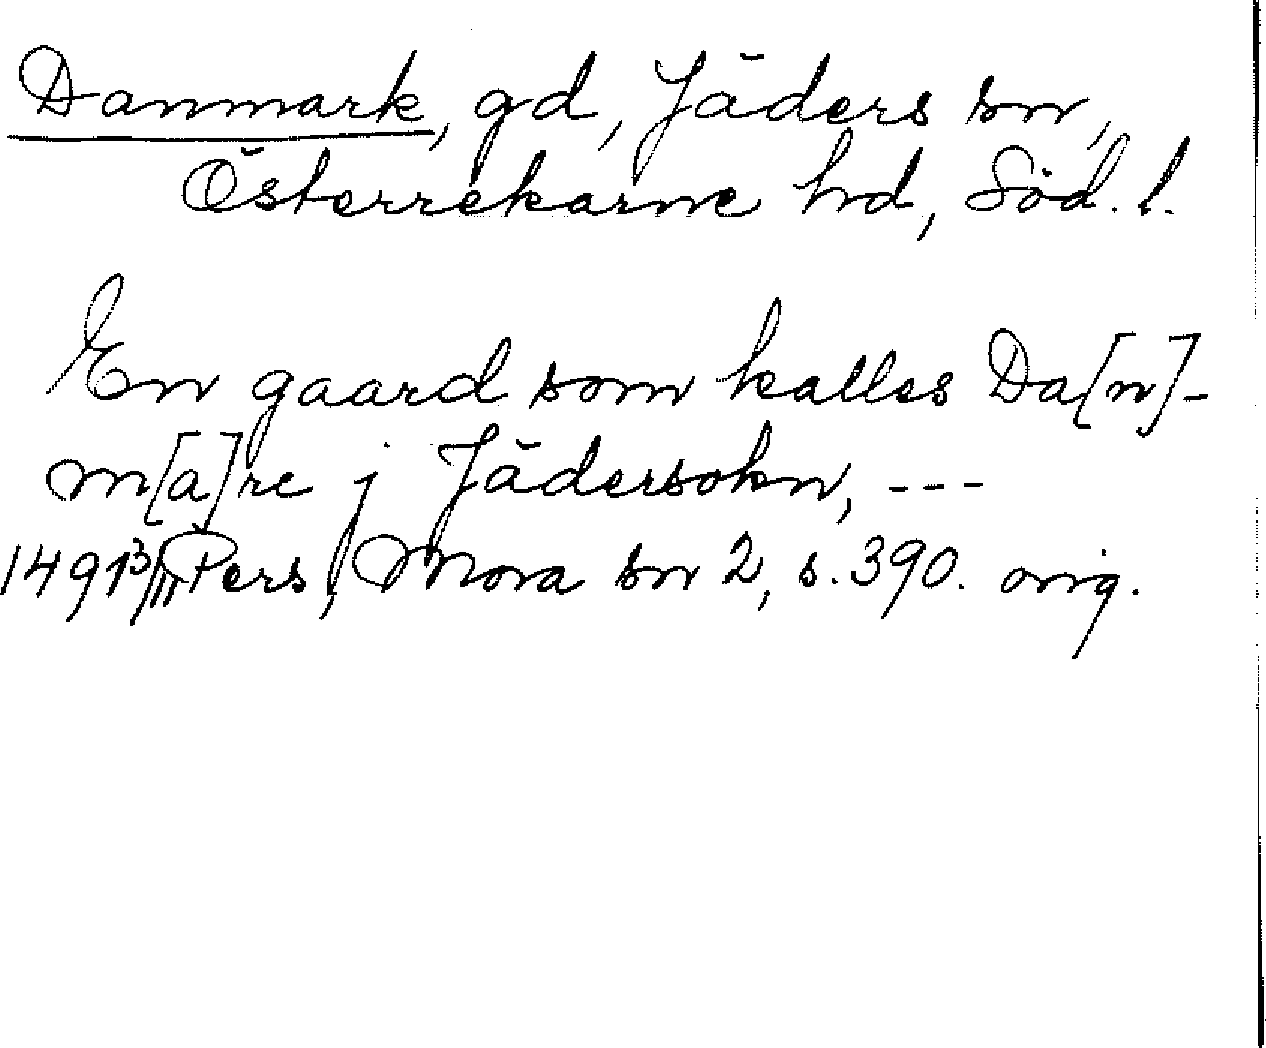 Danmark, gd, Jäders sn,
Österrekarne hd, Söd. l.
En gaard som kalles Da[n]-
m[a]rc j Jädersokn, ---
1491 3/11 Pers, Mora sn 2, s. 390. orig.